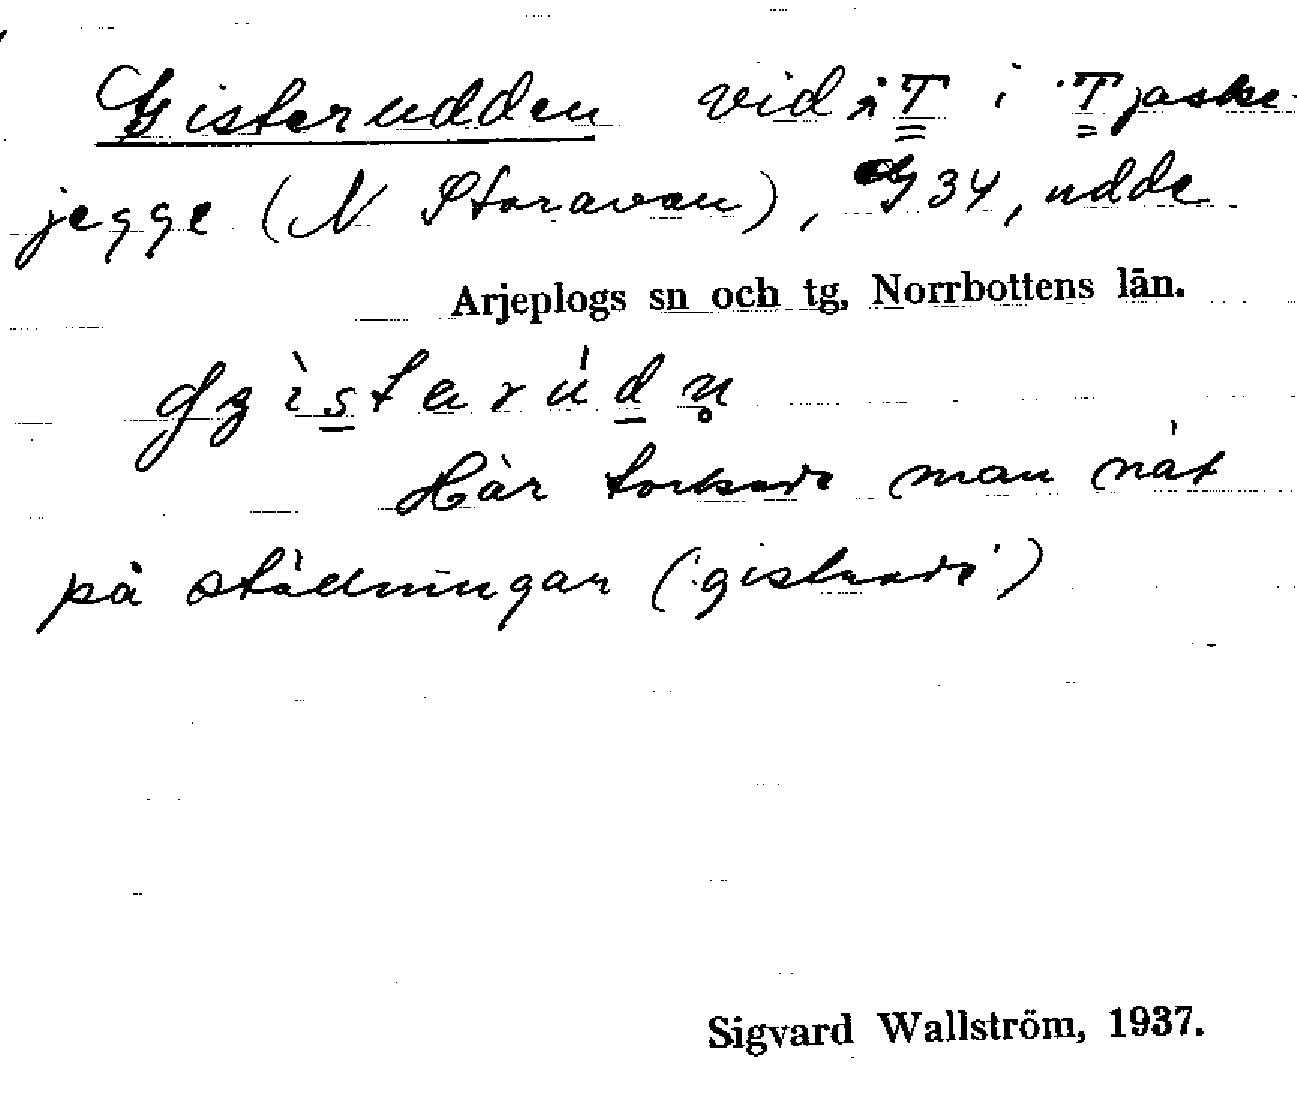 Gisterudden vid T i Tjaske-
jegge (N Storavan), G 34, udde
Arjeplogs sn och tg, Norrbottens län.
Här torkade man nät
på ställningar (gistrade)
Sigvard Wallström, 1937.